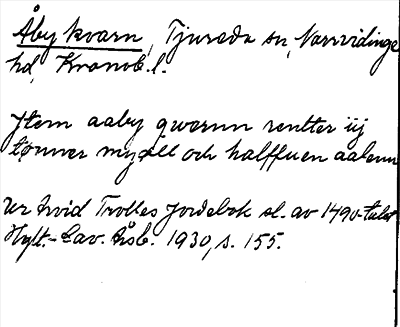 Åby kvarn, Tjureda sn, Norrvidinge
hd, Kronob. l.
Jtem aaby qwernn rentter iij
tønner myøll och halffuen aalenn
Ur Arvid Trolles Jordebok sl. av 1490-talet
Hylt.-Cav. Årsb. 1930, s. 155.